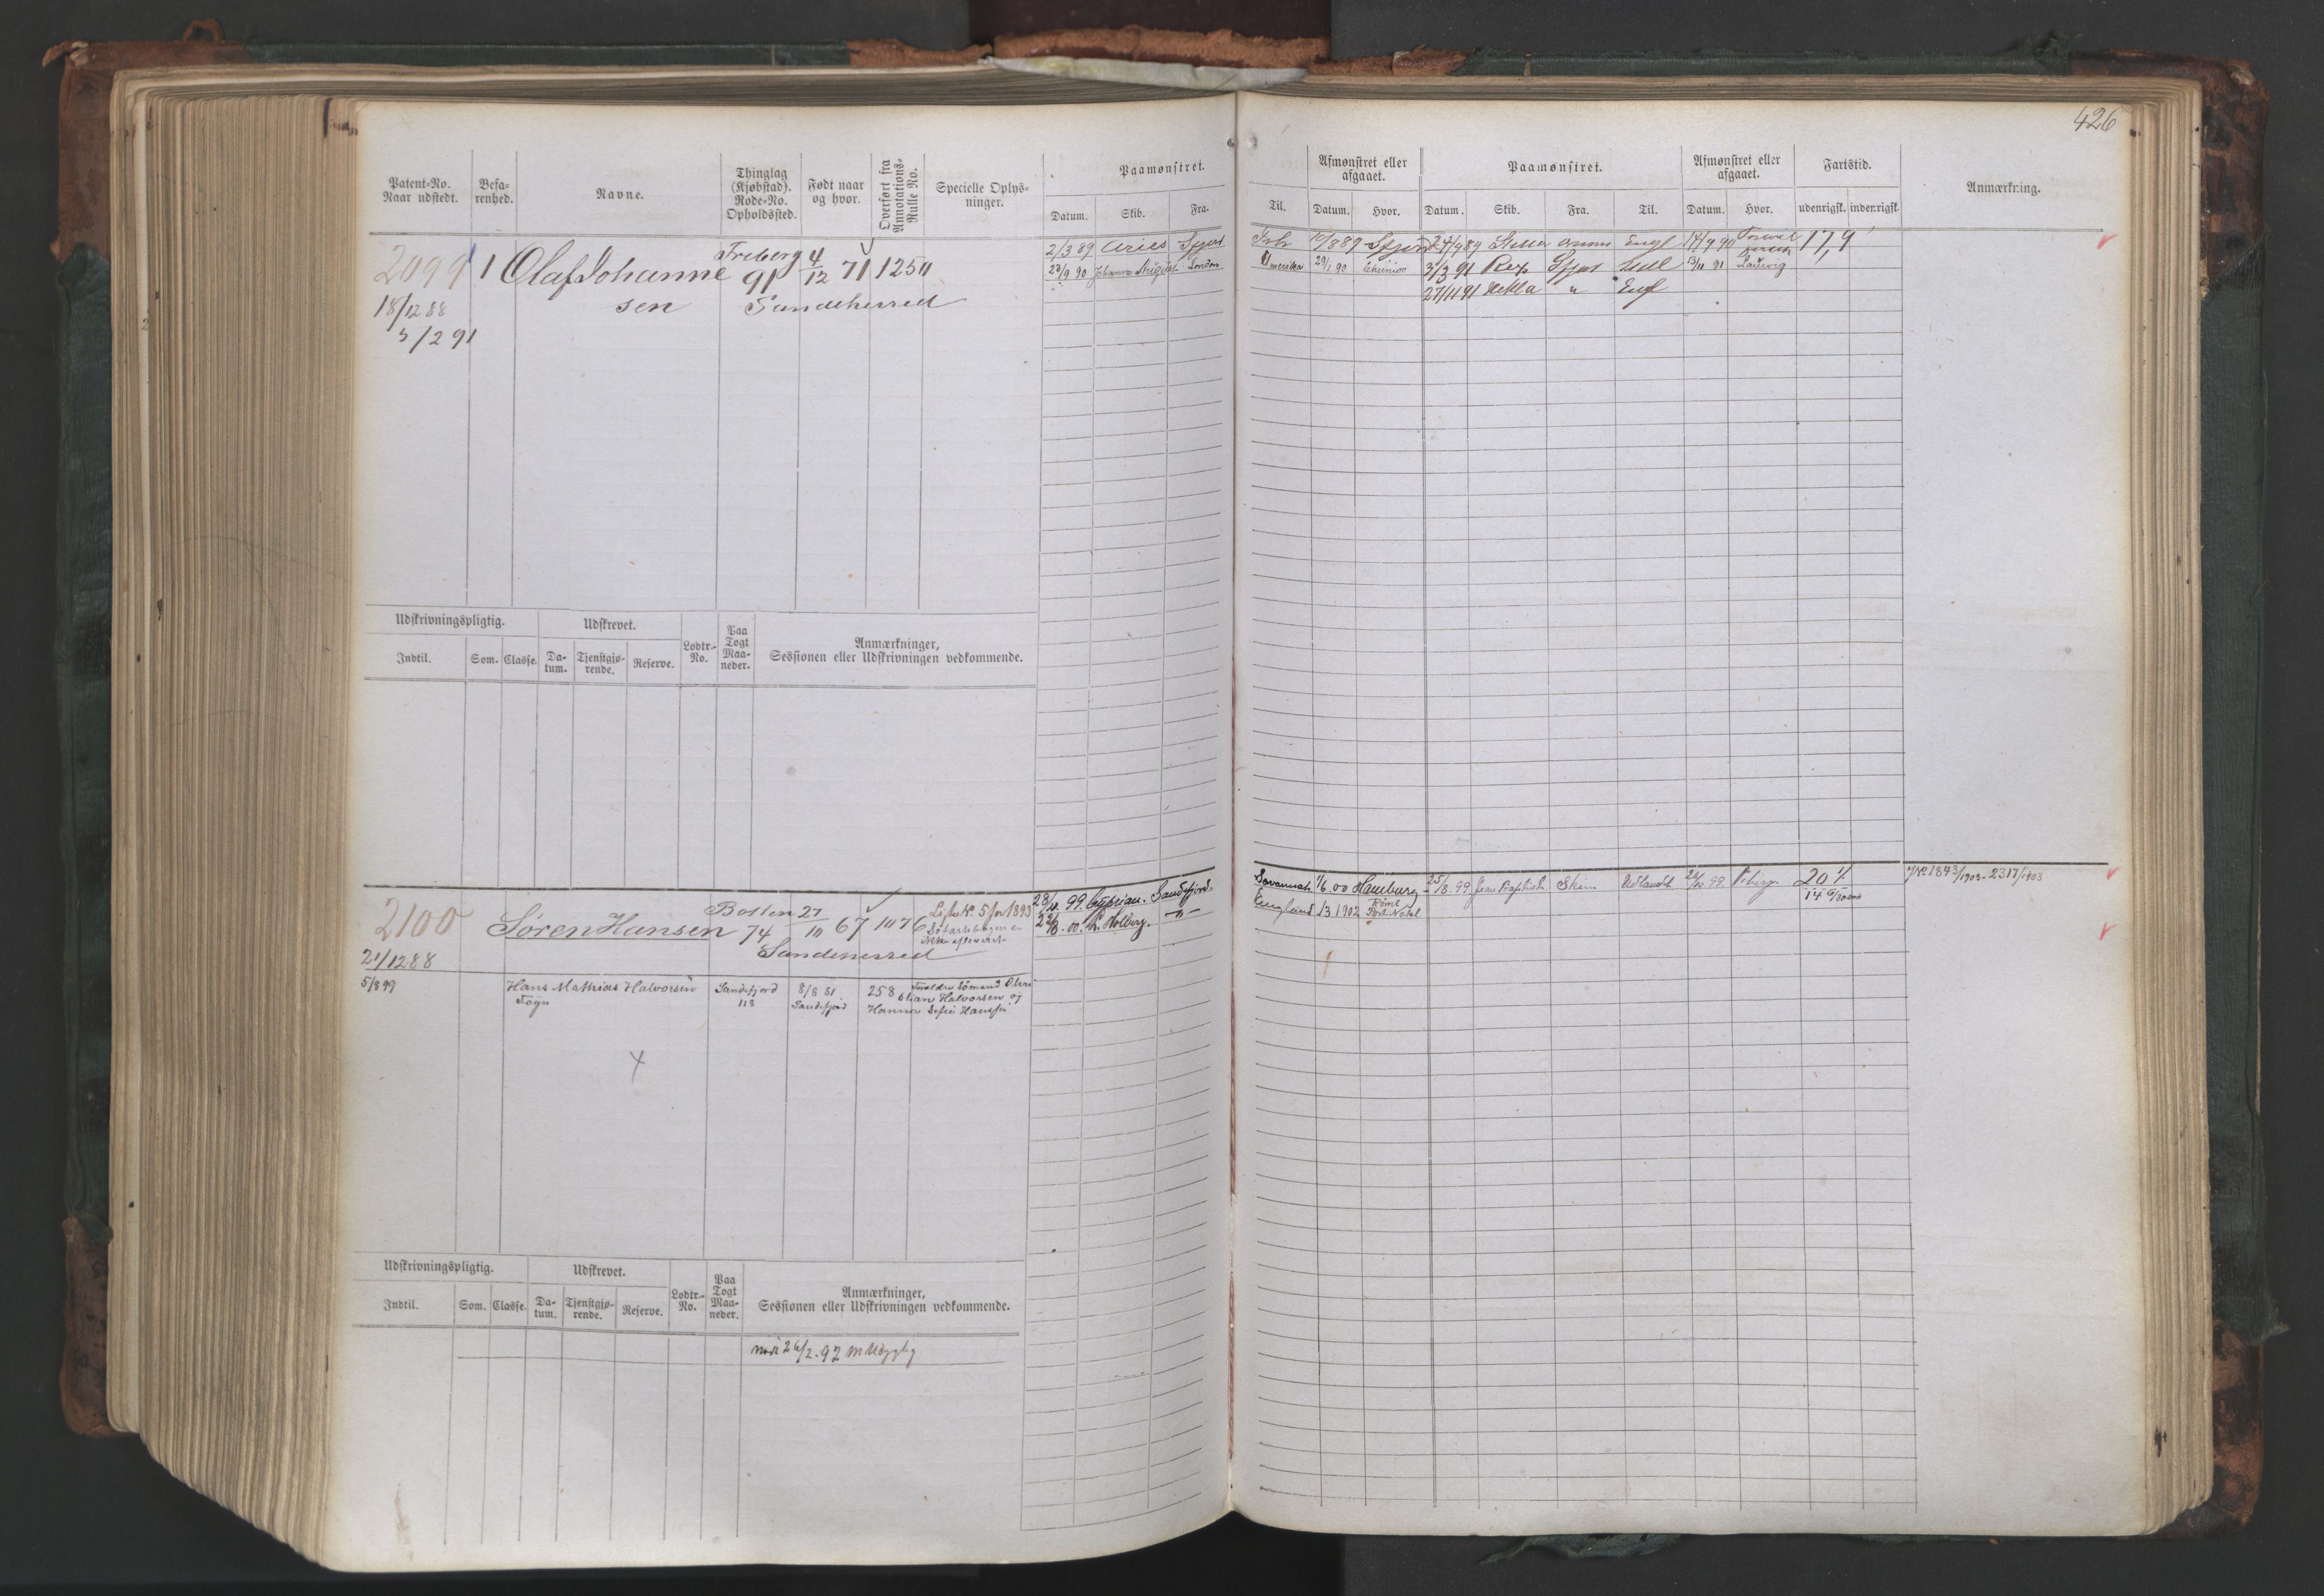 426
Patent-No. Naar udstedt.
Befarenhed.
Navne.
Thinglag (Kjøbstad). Rode-No. Opholdssted.
Født naar og hvor.
Overført fra Annotations-Rulle No.
Specielle Oplysninger.
Paamønstret.
Datum. Skib. Fra.
Til.
Afmønstret eller afgaaet.
Datum. Hvor.
Paamønstret.
Datum. Skib. Fra. Til.
Afmønstret eller afgaaet.
Datum. Hvor.
Fartstid.
udenrigsk. indenrigsk.
Anmærkning.
2099 1 Olaf Johanne Freberg 4/12 71 1250
91
sen Sandeherred
18/12 88
3/2 91
2/3 89 Aries Sfjord
23/9 90 Johanna London
12/8 89 Sfjord 24/9 89 Stella Engl 14/9 90 17,9
Amerika 29/1 90 3/3 91 Rex Sfjord 13/11 91 Laurvig
27/11 91 Hekla " Engl
Udskrivningspligtig.
Udskrevet.
Lodtr.-No.
Paa Togt Maaneder.
Anmærkninger, Sessionen eller Udskrivningen vedkommende.
Indtil. Som. Classe. Datum. Tjenstgjørende. Reserve.
2100 Søren Hansen 74 27/10 67 1076
No. 5 for 1893
Sandeherred
21/12 88
5/8 99 Hans Mathias Halvorsen Sandefjord 8/8 81 258
Føyn 118 Sandefjord
Halvorsen og
Hanna Sofie
28/10 99. Cyprian. Sandefjord
L. Holberg. -"-
Savannah 1/6. 00 Hamburg 25/8. 99. Jean Baptist Skien Udlandet 99 20
England 1902 Port Natal
1843/1903 - 2317/1903
Udskrivningspligtig.
Udskrevet.
Lodtr.-No.
Paa Togt Maaneder.
Anmærkninger, Sessionen eller Udskrivningen vedkommende.
Indtil. Som. Classe. Datum. Tjenstgjørende. Reserve.